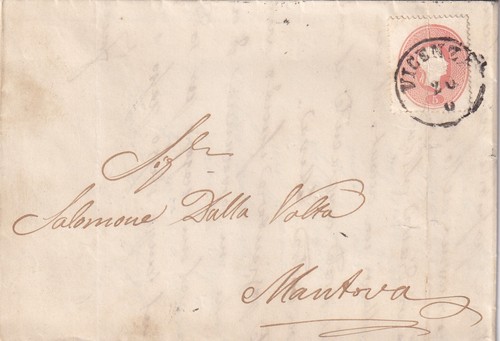 VICENZA
20
6
Sigr
Salomone Dalla Volta
Mantova
5